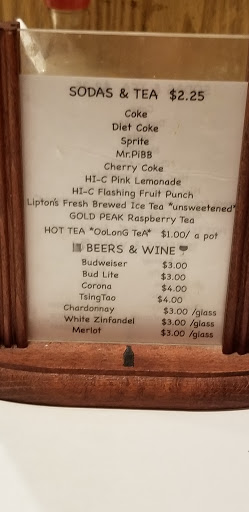 SODAS & TEA $2.25
Coke
Diet Coke
Sprite
Mr.PiBB
Cherry Coke
HI-C Pink Lemonade
HI-C Flashing Fruit Punch
Lipton's Fresh Brewed Ice Tea *unsweetened*
GOLD PEAK Raspberry Tea
HOT TEA *OoLonG TeA* $1.00/ a pot
BEERS & WINE
Budweiser $3.00
Bud Lite $3.00
Corona $4.00
TsingTao $4.00
Chardonnay $3.00 /glass
White Zinfandel $3.00 /glass
Merlot $3.00/ glass